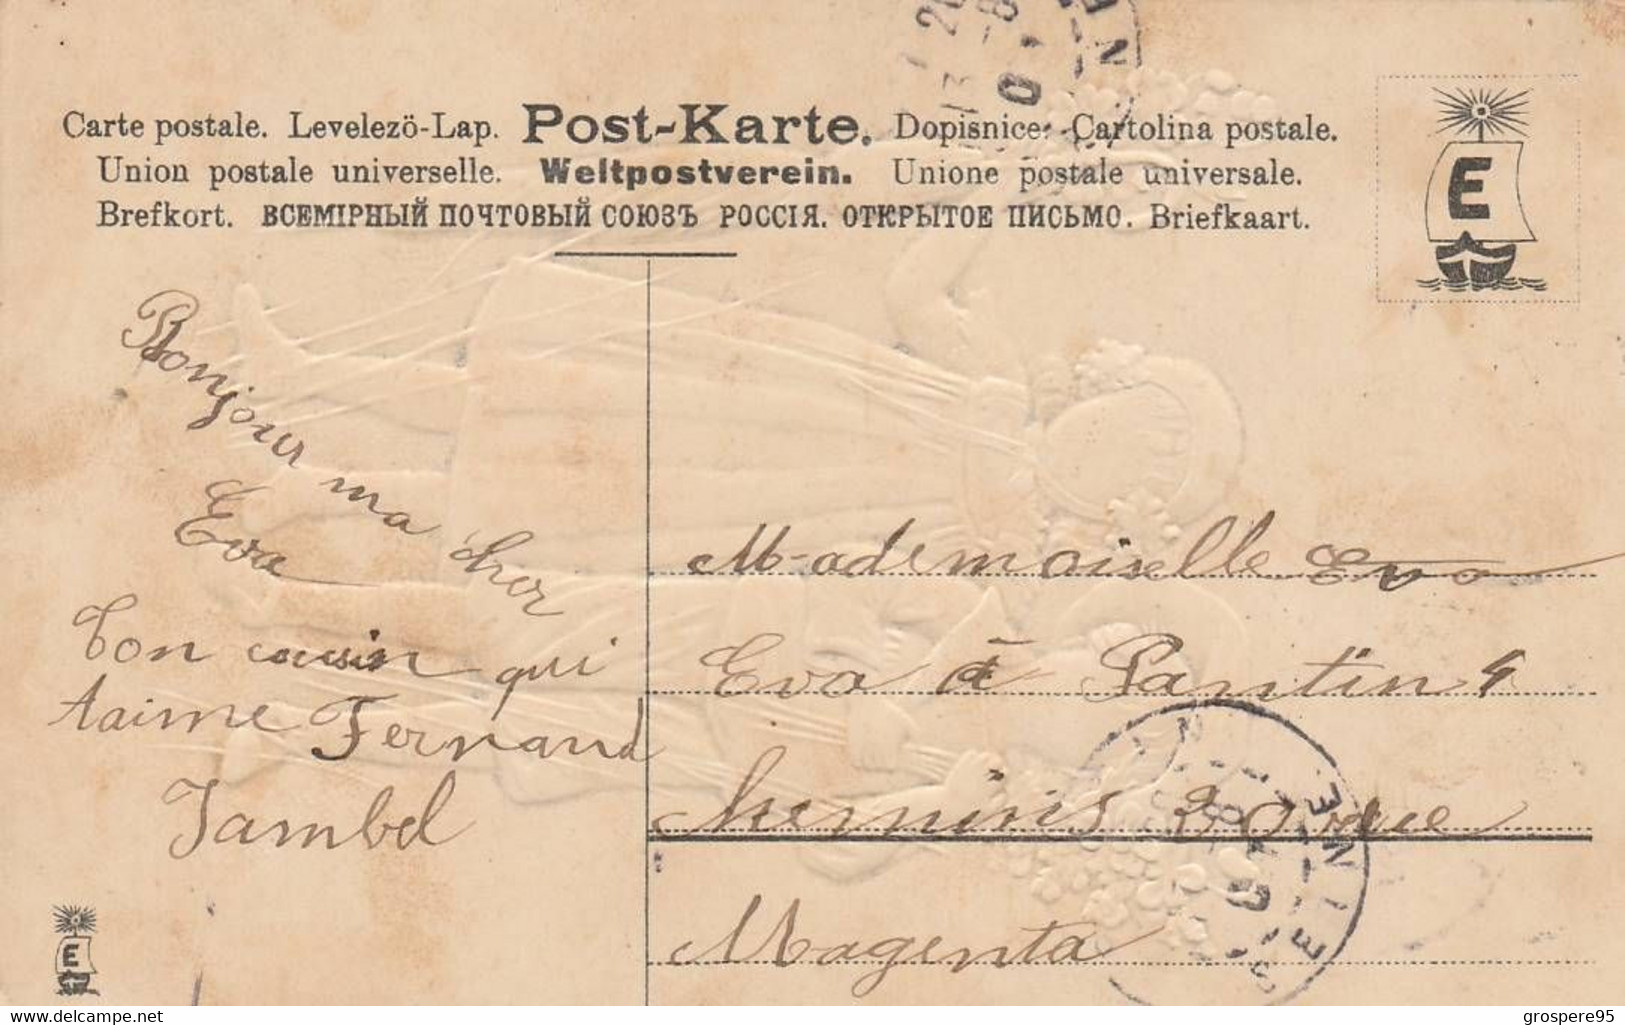 Carte postale. Levelezö-Lap. Post-Karte. Dopisnice. Cartolina postale.
Union postale universelle. Weltpostverein. Unione postale universale.
Brefkort. ВСЕМІРНЫЙ ПОЧТОВЫЙ СОЮЗЪ РОССІЯ. ОТКРЫТОЕ ПИСЬМО. Briefkaart.
E
Bonjour ma cher
Eva
Ton cousin qui
taime Fernand
Jambel
Mademoiselle Eva
Eva à Pantin 4
20 rue
Magenta
SEINE
E
www.delcampe.net
grospere95